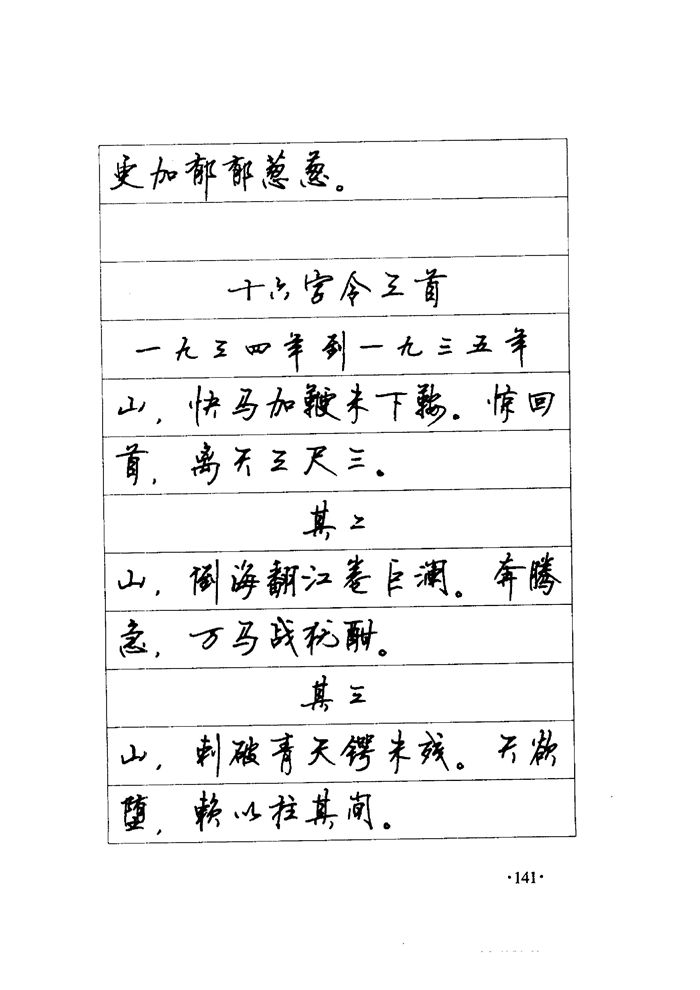 更加郁郁葱葱。
十六字令三首
一九三四年到一九三五年
山，快马加鞭未下鞍。惊回
首，离天三尺三。
其二
山，倒海翻江卷巨澜。奔腾
急，万马战犹酣。
其三
山，刺破青天锷未残。天欲
堕，赖以拄其间。
·141·